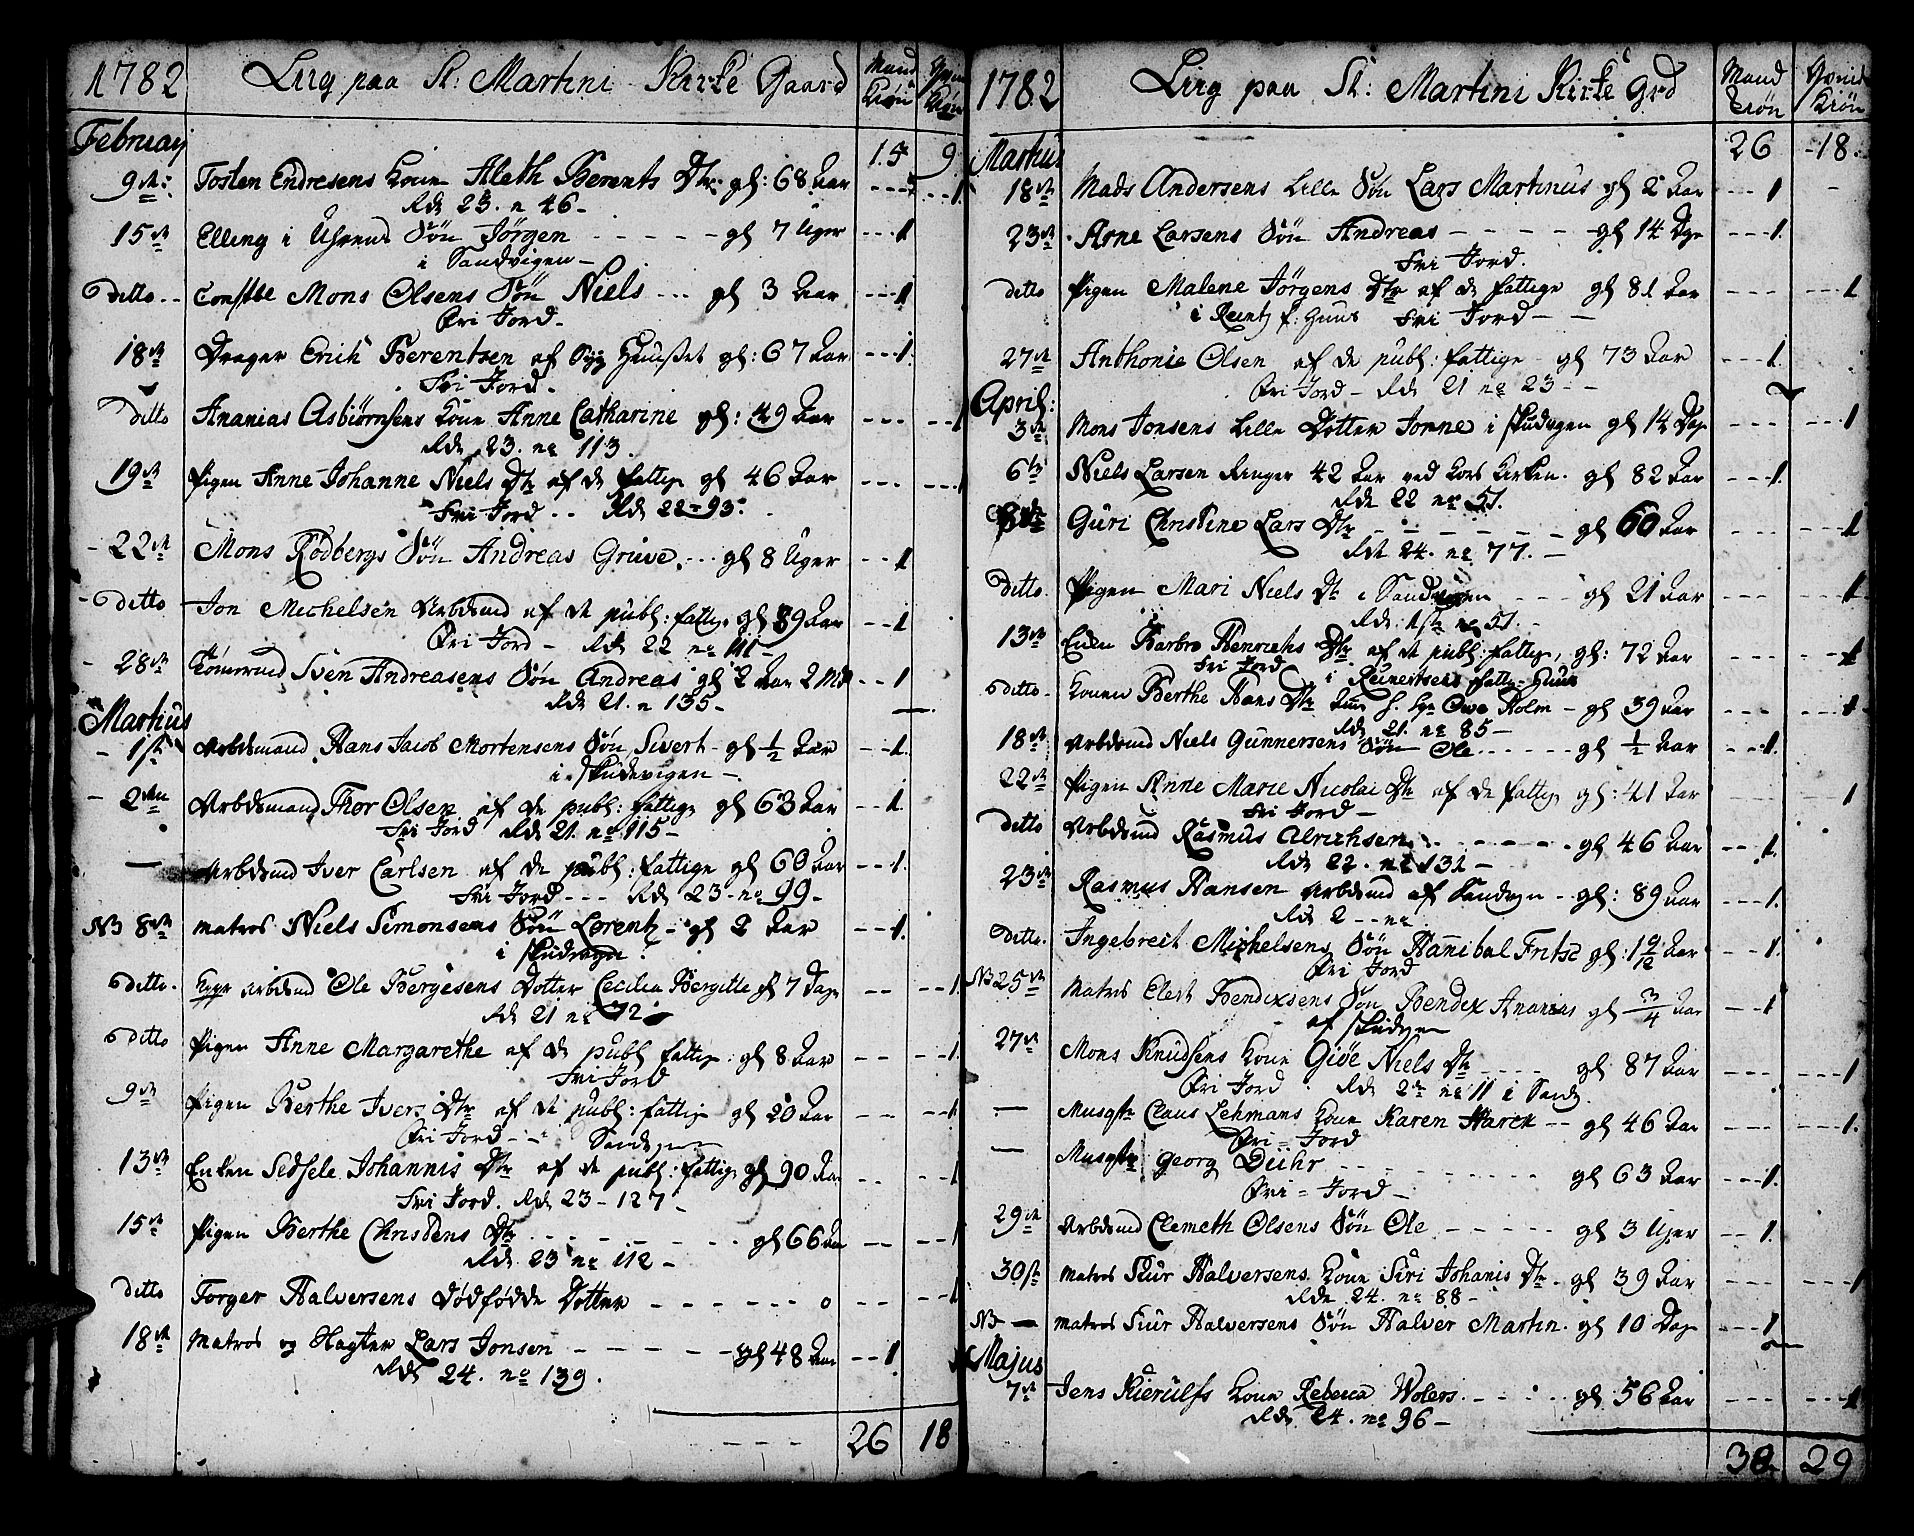 1782 Liig paa St: Martini Kirke Gaard Mand Kiøn Qvin Kiøn
February 15 9
9de: Tosten Endresens Kone Aleth Berents Dtr gl: 68 Aar --- 1
Rde 23. n 46-
15de Elling i Uhrens Søn Jörgen ----- gl 7 Uger --- 1
i Sandvigen-
Ditto -- Constbe Mons Olsens Søn Niels --- gl 3 Aar --- 1
Fri Jord-
18de Drager Erich Berentsen af Syg Huuset gl: 67 Aar --- 1.
Fri Jord-
Ditto Ananias Asbiørnsens Kone Anne Catharine gl: 49 Aar --- --1
Rde 23. no 113.
19de Pigen Anne Johanne Niels Dtr af de fattige gl 46 Aar --- --1
Fri Jord -- Rde 22-93-
22de Mons Rødbergs Søn Andreas Grieve --- gl 8 Uger --- 1
Ditto Jon Michelsen Arbdsmd af de publ: fattige gl 89 Aar --- 1
Fri Jord - Rde 22 no 111-
28de Tömrmd Sven Andreasens Søn Andreas gl 2 Aar 2 Md -- 1
Rde 21. n 135-
Martius
1ste Arbdsmand Hans Jacob Mortensens Søn Sivert - gl ½ Aar --- 1.
i Skudevigen -
2den Arbdsmand Thor Olsen af de publ: fattige gl 63 Aar --- 1.
Fri Jord Rde 21. no 115-
— Arbdsmd Iver Carlsen af de publ: fattige gl 60 Aar --- 1.
Fri Jord --- Rde 23- no 99-
NB 8de Matros Niels Simonsens Søn Lorentz - gl 2 Aar --- 1.
i Skudevigen.
Ditto. Arbdsmd Ole Børgesens Dotter Cecilia Bergitte gl 7 Dage -- --1.
Rde 21 no 72
Ditto Pigen Anne Margarethe af de publ fattige: gl 8 Aar -- --1.
Fri Jord
9de Pigen Berthe Ivers Dtr af de publ: fattige gl 20 Aar -- --1
Fri Jord -- Sandvigen
13de Enken Sedsele Johannis Dtr af de publ: fattige gl 90 Aar -- --1
Fri Jord. Rde 23-127-
15de Pigen Berthe Christens Dtr -------- gl 66 Aar -- --1
Rde 23 no 112-
Ditto Torger Halversens Dødfødde Dotter ------ 0 -- --1
18de Matros og Hagter Lars Jonsen ------ gl 48 Aar -- 1
Rde 24. no 139.
---- 26 18
1782 Liig paa St: Martini Kirke Grd Mand Kiøn Qvinde Kiøn
Martius 26 -18.
18de Mads Andersens lille Søn Lars Martinus gl 2 Aar --- 1
23de Arne Larsens Søn Andreas ----- gl 14 Dge --- 1.
Fri Jord.
Ditto Pigen Malene Jörgens Dtr af de fattige gl 81 Aar --- ---1
i Rentz f: Huus Fri Jord --
27de Anthonie Olsen af de publ: fattige - gl 73 Aar --- 1.
Fri Jord - Rde 21 no 23 --
April:
3de Mons Jonsens lille Dotter Jonne i Skudvgen gl 14 Dage --- ---1
6te Niels Larsen Ringer 42 Aar ved Kors Kirken. gl 82 Aar --- 1.
Rde 22 no 51.
Guri Christine Lars Dtr ------ gl 60 Aar --- ---1
Rde 24. no 77. -
Ditto Pigen Mari Niels Dtr i Sandvigen --- gl 21 Aar --- ---1
Rde 1ste no 51. -
13de Enken Barbro Henrichs Dtr af de publ: fattige, gl: 72 Aar --- ---1
Fri Jord i Reinertsens fattig-Huus
Ditto. Konen Berthe Hans Dtr Owe Holm - gl 39 Aar --- ---1
Rde 21. no 85-
18de Arbdsmd Niels Gunnersens Søn Ole ------ gl ½ Aar --- 1.
22de Pigen Anne Marie Nicolai Dtr af de fattige gl: 41 Aar --- 1
Fri Jord-
Ditto Arbdsmd Rasmus Alrichsen ------ gl 46 Aar --- 1.
Rde 22. no 131-
23de Rasmus Hansen Arbdsmd af Sandvgn -- gl: 89 Aar --- 1.
Rde 2 -- no
Ditto. Ingebreit Michelsens Søn Hannibal Fritse gl: 1 9/12 Aar --- 1.
Fri Jord
NB 25de Matros Elert Bendixsens Søn Bendix Ananias gl 3/4 Aar --- 1
af Skudvgen
27de Mons Knudsens Kone Giöe Niels Dtr ---- gl 87 Aar --- ---1
Fri Jord Rde 2de no 11 i Sandv.
— Musqtr Claus Lehmans Kone Karen Harck -- gl 46 Aar --- ---1.
Fri = Jord
— Musqtr Georg Dühr -------- gl 63 Aar --- 1.
Fri = Jord -
29de Arbdsmd Clemeth Olsens Søn Ole ----- gl 3 Uger --- 1.
30te Matros Siur Halversens Kone Siri Johanis Dtr - gl 39 Aar --- ---1
Rde 24. no 88-
NB — Matros Siur Halversens Søn Halver Martin. gl 10 Dage --- 1
Majus
7de Jens Kierulfs Kone Rebecca Wolers ----- gl 56 Aar --- ---1
Rde 24. no 96-
38. 29